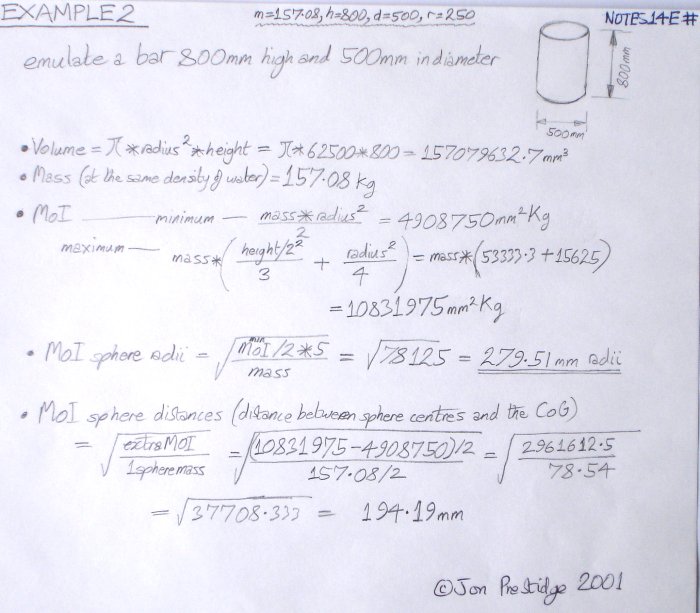 EXAMPLE 2
m=157.08, h=800, d=500, r=250
NOTES14-E#
emulate a bar 800mm high and 500mm in diameter
800mm
500mm
• Volume = π * radius² * height = π * 62500 * 800 = 157079632.7 mm³
• Mass (at the same density of water) = 157.08 kg
• MoI — minimum — mass * radius² / 2 = 4908750 mm² Kg
maximum — mass * ( height/2² / 3 + radius² / 4 ) = mass * (53333.3 + 15625)
= 10831975 mm² Kg
• MoI sphere radii = √ min MoI / 2 * 5 / mass = √78125 = 279.51 mm radii
• MoI sphere distances (distance between sphere centres and the CoG)
= √ extra MoI / 1 sphere mass = √ (10831975 - 4908750)/2 / 157.08/2 = √ 2961612.5 / 78.54
= √37708.333 = 194.19 mm
© Jon Prestidge 2001